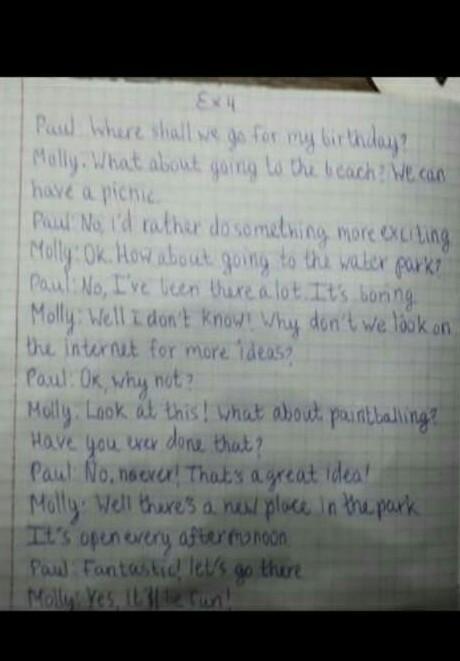 Ex 4
Paul: Where shall we go for my birthday?
Molly: What about going to the beach? We can
have a picnic.
Paul: No, i'd rather do something more exciting
Molly: Ok. How about going to the water park?
Paul: No, I've been there a lot. It's boring.
Molly: Well I don't know! Why don't we look on
the internet for more ideas?
Paul: Ok, why not?
Molly: Look at this! what about paintballing?
Have you ever done that?
Paul: No, never! That's a great idea!
Molly: Well there's a new place in the park
It's open every afternoon
Paul: Fantastic! let's go there
Molly: Yes, It'll be fun!